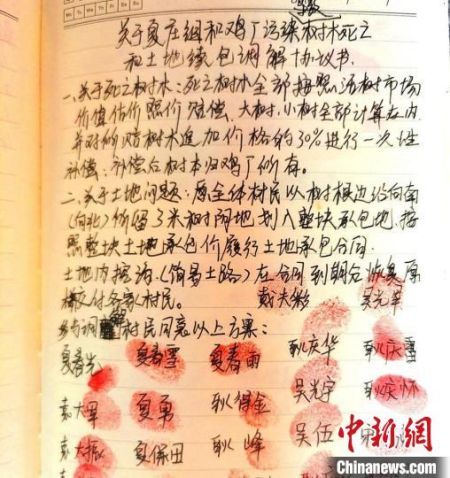 关于夏庄组和鸡厂污染树木死亡
和土地续包调解协议书.
一、关于死亡树木:死亡树木全部按照活树市场
价值估价照价赔偿、大树、小树全部计算在内
并对所赔树木追加价格的30%进行一次性
补偿:补偿后树木归鸡厂所有.
二、关于土地问题:原全体村民以树根边沿向南
(向北)所留3米树阴地划入整块承包地,按
照整块土地承包价履行土地承包合同.
土地内挖沟(简易土路)在合同到期后恢复原
样交付各家村民。
村民同意以上方案:
夏春光 夏春雪 夏春雨 耿庆华 耿庆雪
袁大军 夏勇 耿得金 吴光宇 耿庆怀
袁大振 夏保田 耿峰 吴伍
中新网
Chinanews.com